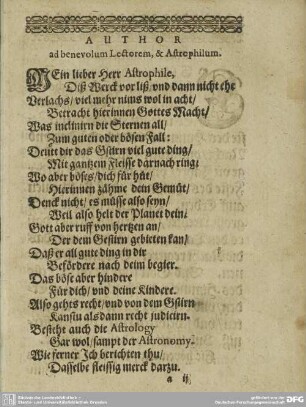 AUTHOR
ad benevolum Lectorem, & Astrophilum.
MEin lieber Herr Astrophile,
Diß Werck vor liß/ vnd dann nicht ehe
Verlachs/ viel mehr nims wol in acht/
Betracht hierinnen Gottes Macht/
Was inclinirn die Sternen all/
Zum guten oder bösen Fall:
Deutt dir das Gstirn viel gute ding/
Mit gantzem Fleisse darnach ring:
Wo aber böses/ dich für hüt/
Hierinnen zähme dein Gemüt/
Denck nicht/ es müsse also seyn/
Weil also helt der Planet dein:
Gott aber ruff von hertzen an/
Der dem Gestirn gebieten kan/
Daß er all gute ding in dir
Befördere nach deim begier.
Das böse aber hindere
Für dich/ vnd deine Kindere.
Also gehts recht/ vnd von dem Gstirn
Kanstu als dann recht judicirn.
Besteht auch die Astrology
Gar wol/ sampt der Astronomy.
Wie ferner Ich berichten thu/
Dasselbe fleissig merck darzu.
a ij